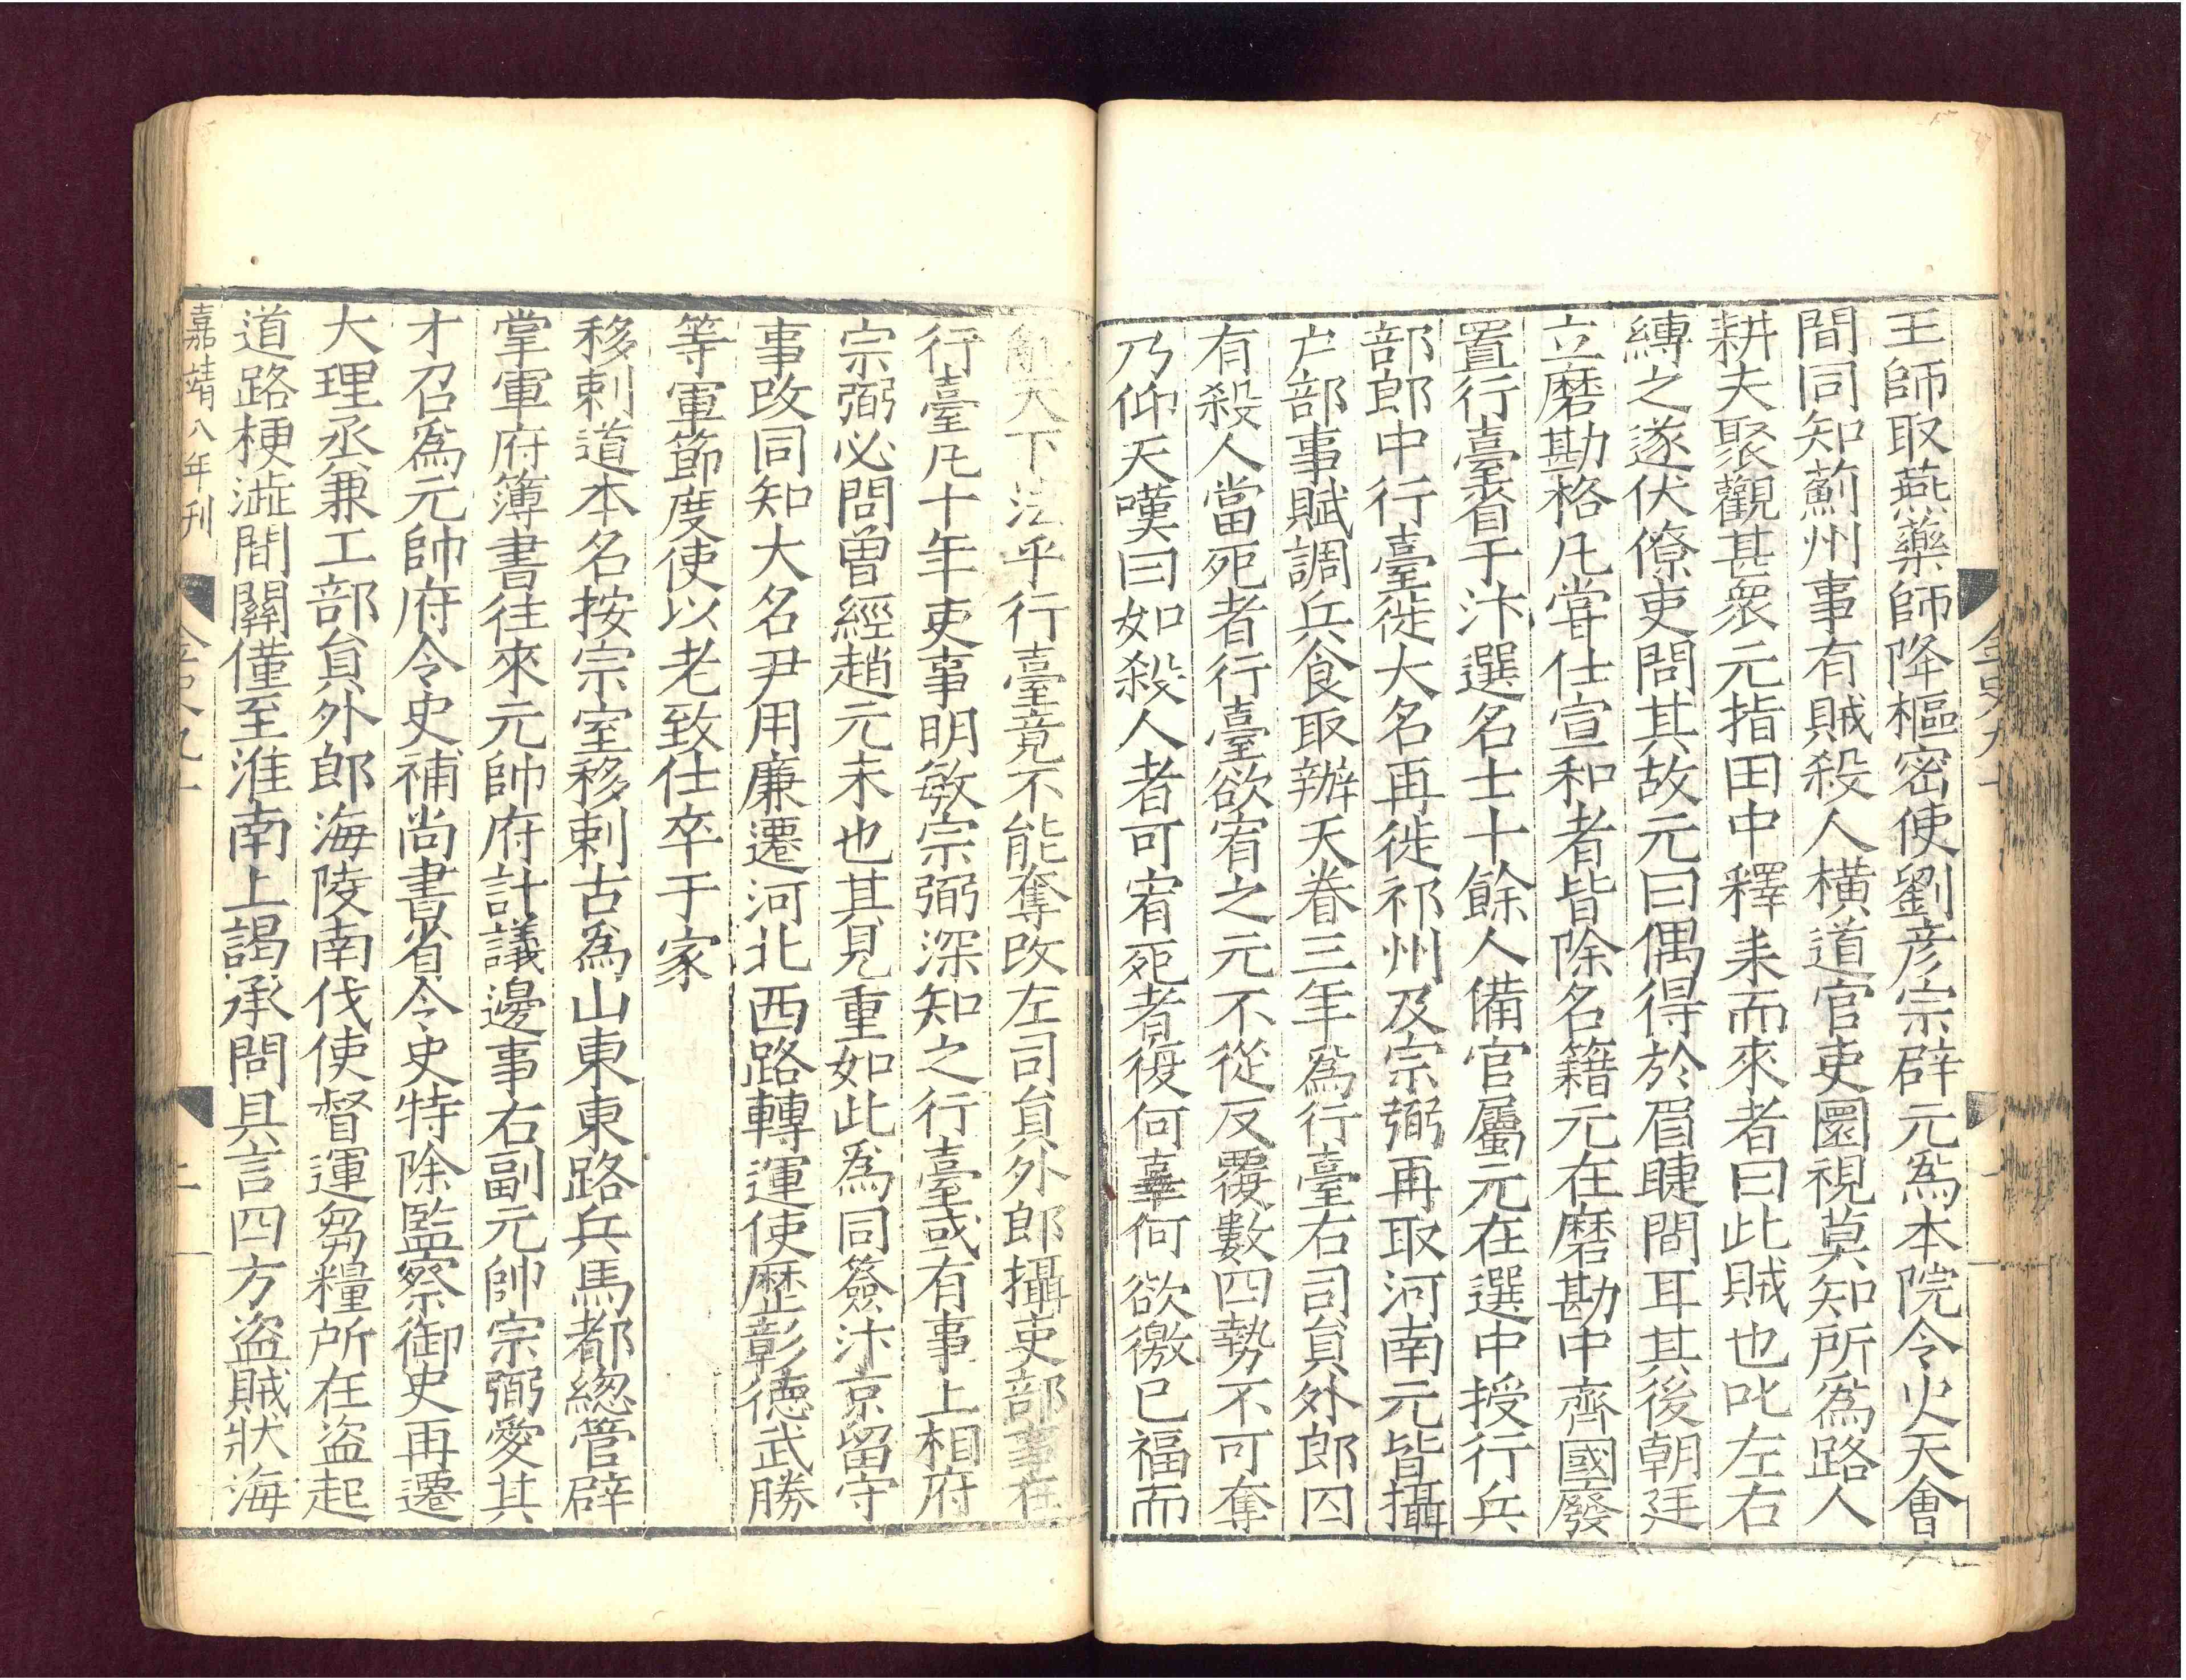 金史九十
一
王師取燕藥師降樞密使劉彦宗辟元爲本院令史天會
間同知薊州事有賊殺人橫道官吏圜視莫知所爲路人
耕夫聚觀甚衆元指田中釋耒而來者曰此賊也叱左右
縛之遂伏僚吏問其故元曰偶得於眉睫間耳其後朝廷
立磨勘格凡嘗仕宣和者皆除名籍元在磨勘中齊國廢
置行臺省于汴選名士十餘人備官屬元在選中授行兵
部郎中行臺徙大名再徙祁州及宗弼再取河南元皆攝
户部事賦調兵食取辦天眷三年爲行臺右司員外郎囚
有殺人當死者行臺欲宥之元不從反覆數四勢不可奪
乃仰天嘆曰如殺人者可宥死者復何辜何欲徼已福而
亂天下法乎行臺竟不能奪改左司員外郎攝吏部事在
行臺凡十年吏事明敏宗弼深知之行臺或有事上相府
宗弼必問曽經趙元未也其見重如此爲同簽汴京留守
事改同知大名尹用廉遷河北西路轉運使歴彰德武勝
等軍節度使以老致仕卒于家
移剌道本名按宗室移剌古爲山東東路兵馬都緫管辟
掌軍府簿書往來元帥府計議邊事右副元帥宗弼愛其
才召爲元帥府令史補尚書省令史特除監察御史再遷
大理丞兼工部員外郎海陵南伐使督運芻糧所在盗起
道路梗澁間關僅至淮南上謁承問具言四方盗賊狀海
嘉靖八年刊
金史九十
二